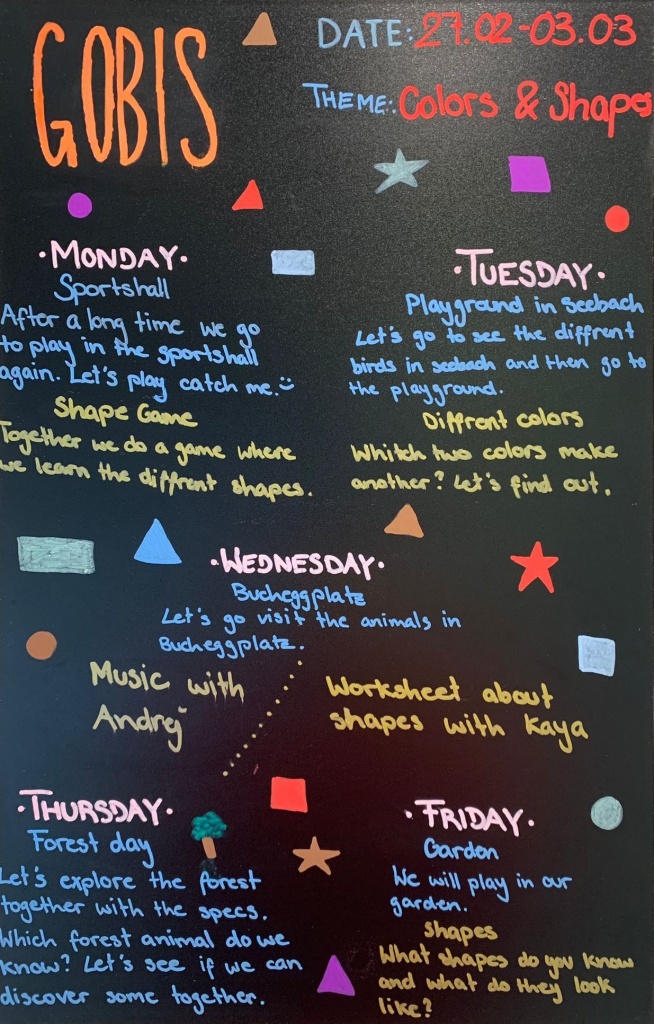 GOBIS
DATE: 27.02-03.03
THEME: Colors & Shapes
·MONDAY·
Sportshall
After a long time we go
to play in the sportshall
again. Let's play catch me.
Shape Game
Together we do a game where
we learn the diffrent shapes.
·TUESDAY·
Playground in Seebach
Let's go to see the diffrent
birds in seebach and then go to
the playground.
Diffrent colors
Whitch two colors make
another? Let's find out.
·WEDNESDAY·
Bucheggplatz
Let's go visit the animals in
Bucheggplatz.
Music with
Andrej
Worksheet about
shapes with Kaya
·THURSDAY·
Forest day
Let's explore the forest
together with the specs.
Which forest animal do we
know? Let's see if we can
discover some together.
·FRIDAY·
Garden
We will play in our
garden.
shapes
What shapes do you know
and what do they look
like?